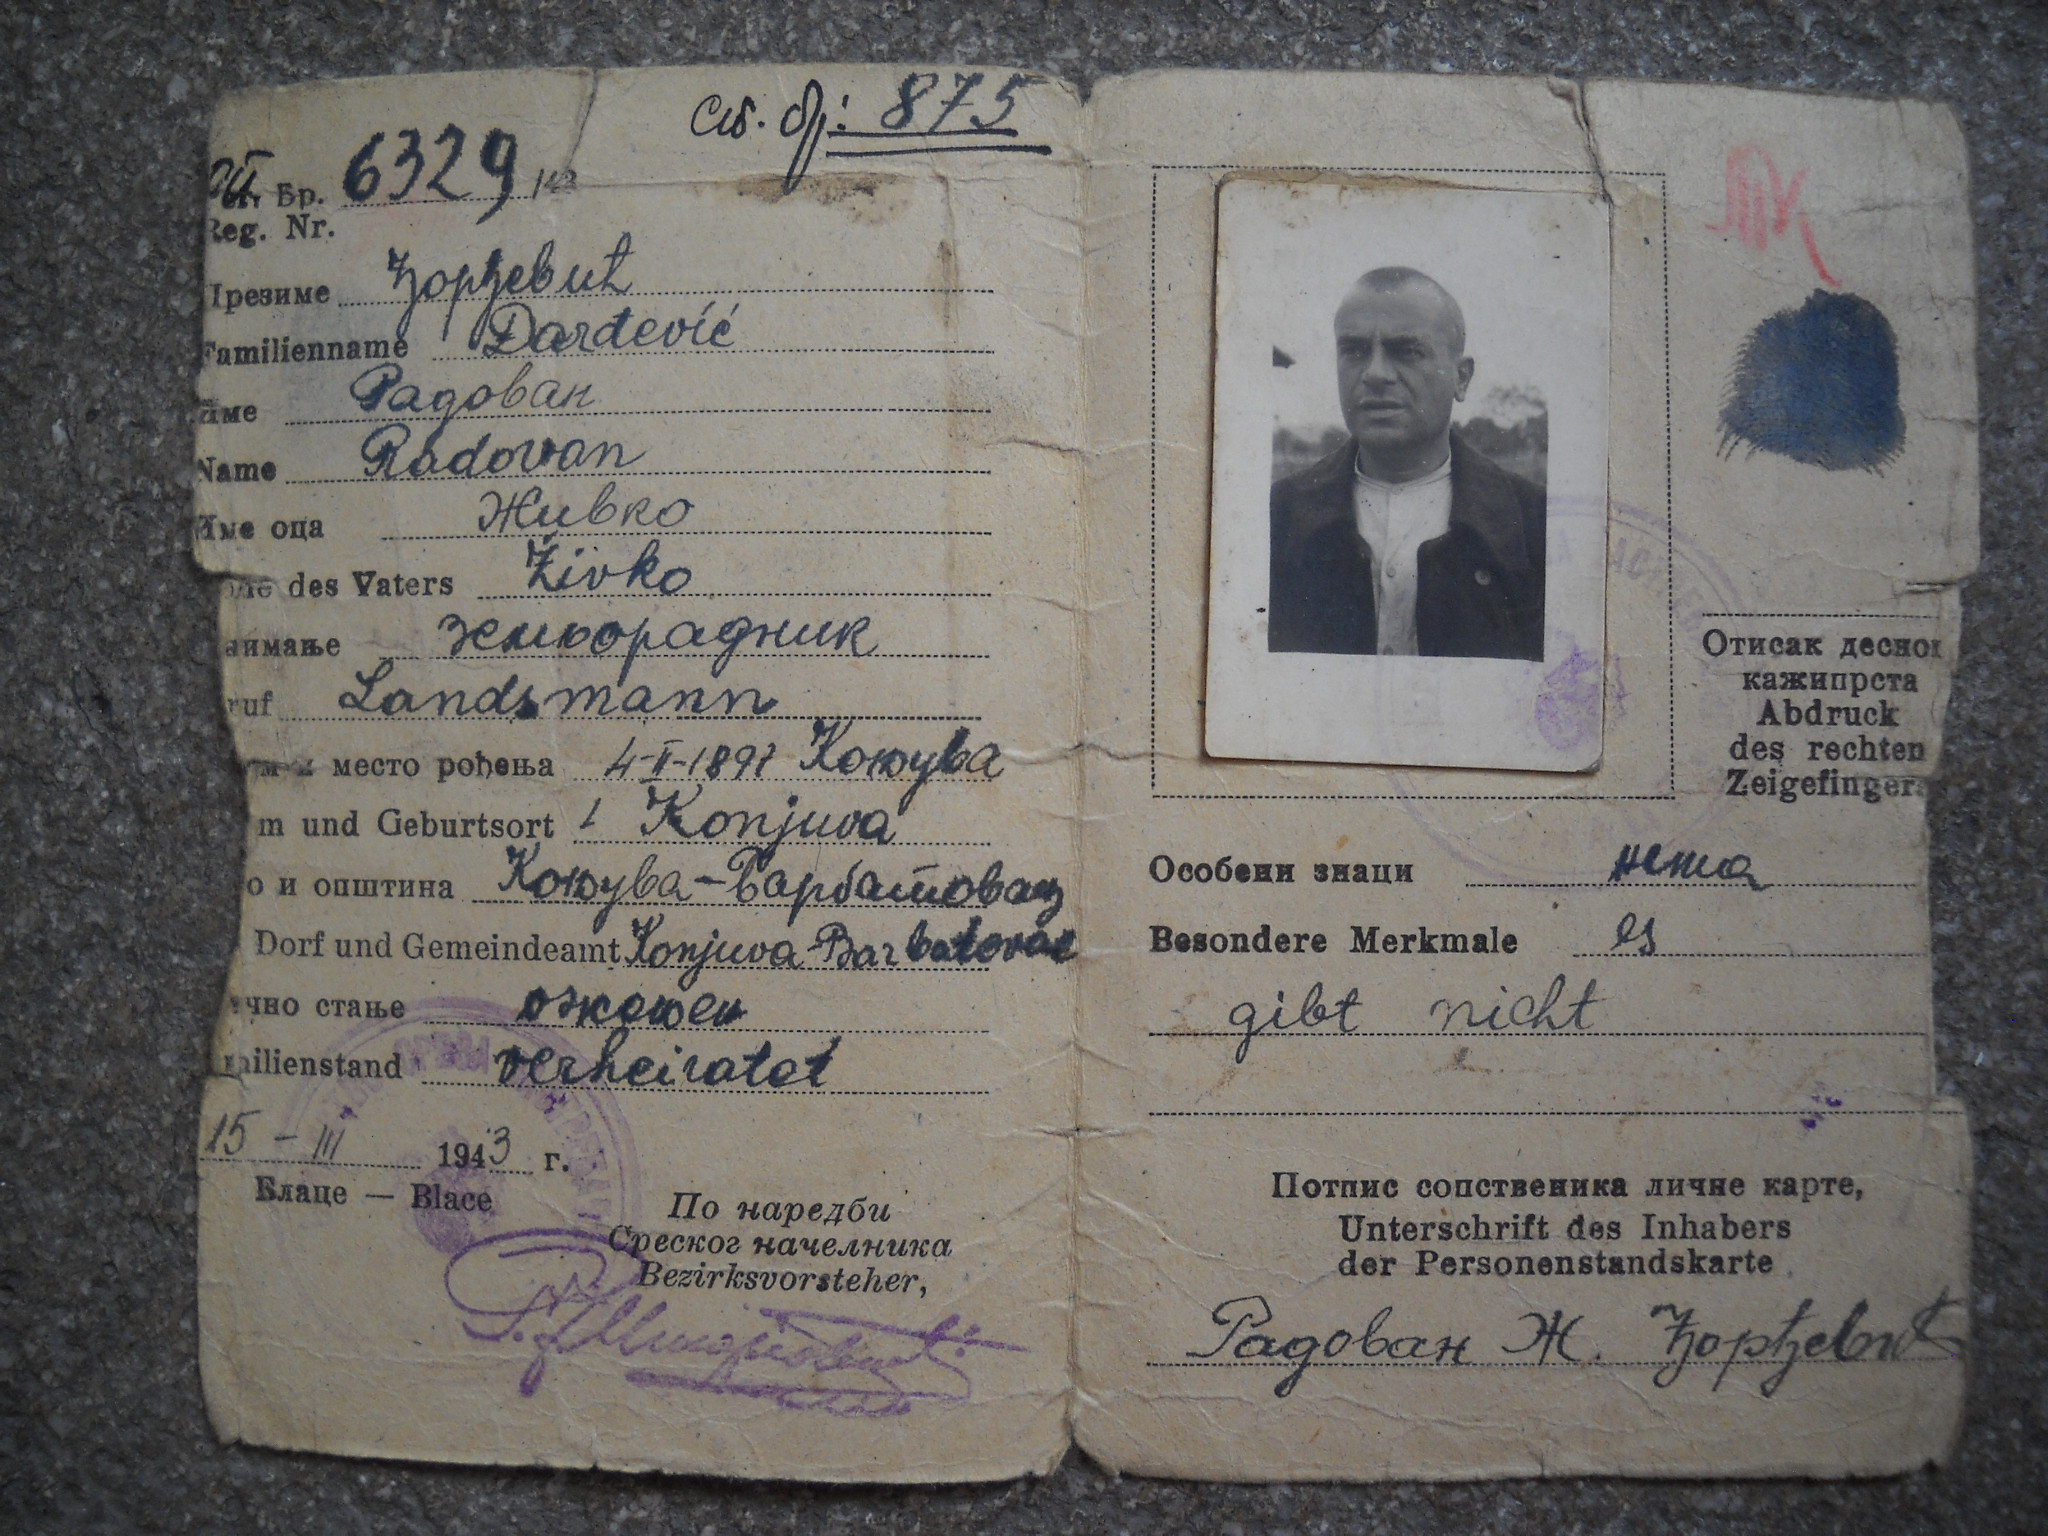 Сл. бр: 875
Бр. 6329
Reg. Nr.
Презиме Ђорђевић
Familienname Đorđević
Име Радован
Name Radovan
Име оца Живко
des Vaters Živko
Земљорадник
Landsmann
место рођења 4-II-1897 Коњува
und Geburtsort Konjuva
и општина Коњува-Барбатовац
Dorf und Gemeindeamt Konjuva-Barbatovac
стање ожењен
verheiratet
15-III 1943 г.
Блаце — Blace
По наредби
Среског начелника
Bezirksvorsteher,
Отисак десног
кажипрста
Abdruck
des rechten
Zeigefingers
Особени знаци нема
Besondere Merkmale es
gibt nicht
Потпис сопственика личне карте,
Unterschrift des Inhabers
der Personenstandskarte
Радован Ж. Ђорђевић